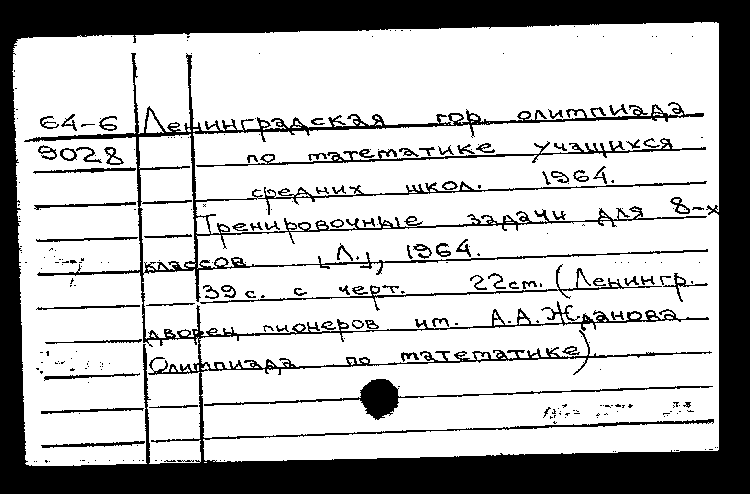 64-6 Ленинградская гор. олимпиада
9028 по математике учащихся
средних школ. 1964.
Тренировочные задачи для 8-х
классов. [Л.], 1964.
39 с. с черт. 22 cm. (Ленингр.
дворец пионеров им. А.А. Жданова.
Олимпиада по математике)